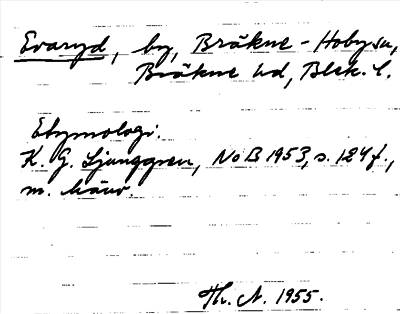 Evaryd, by, Bräkne-Hoby sn,
Bräkne hd, Blek. l.
Etymologi.
K. G. Ljunggren, NoB 1953, s. 124 f.,
m. hänv.
Th. A. 1955.